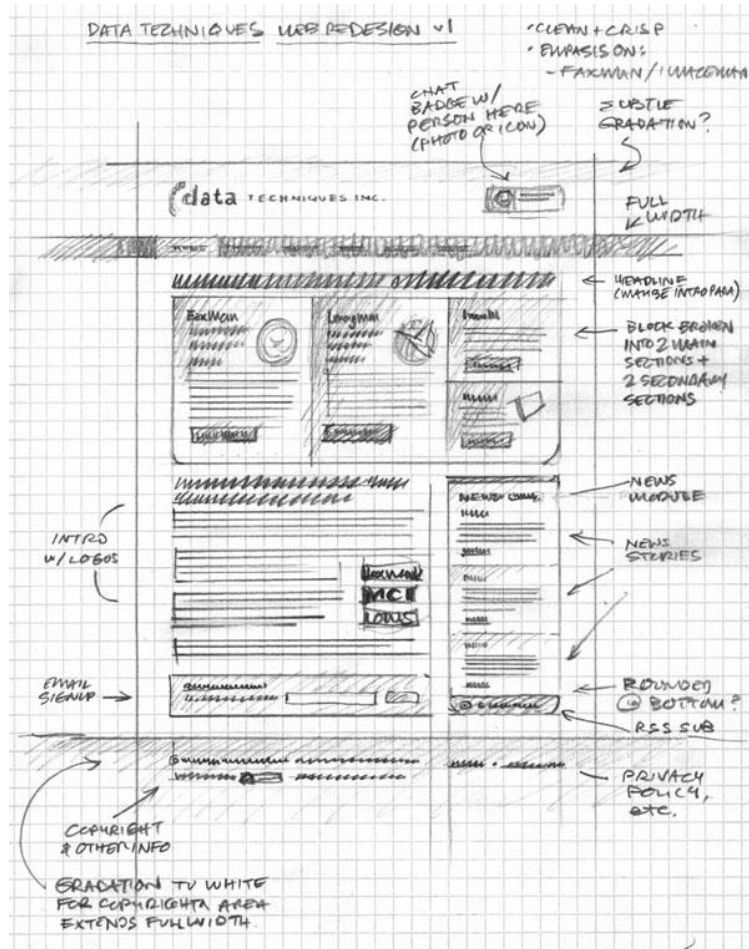 DATA TECHNIQUES WEB REDESIGN v1
• CLEAN + CRISP
• EMPASIS ON:
- FAXMAN / IMAGEMAN
CHAT
BADGE W/
PERSON HERE
(PHOTO OR ICON)
SUBTLE
GRADATION?
data TECHNIQUES INC.
FULL
WIDTH
HEADLINE
(MAYBE INTRO PARA)
FaxMan
ImagMan
BLOCK BROKEN
INTO 2 MAIN
SECTIONS +
2 SECONDARY
SECTIONS
NEWS
NEWS
MODULE
INTRO
W/ LOGOS
NEWS
STORIES
MCI
LOWS
EMAIL
SIGNUP
ROUNDED
@ BOTTOM?
RSS SUB
PRIVACY
POLICY,
etc.
COPYRIGHT
& OTHER INFO
GRADATION TO WHITE
FOR COPYRIGHT AREA
EXTENDS FULL WIDTH.